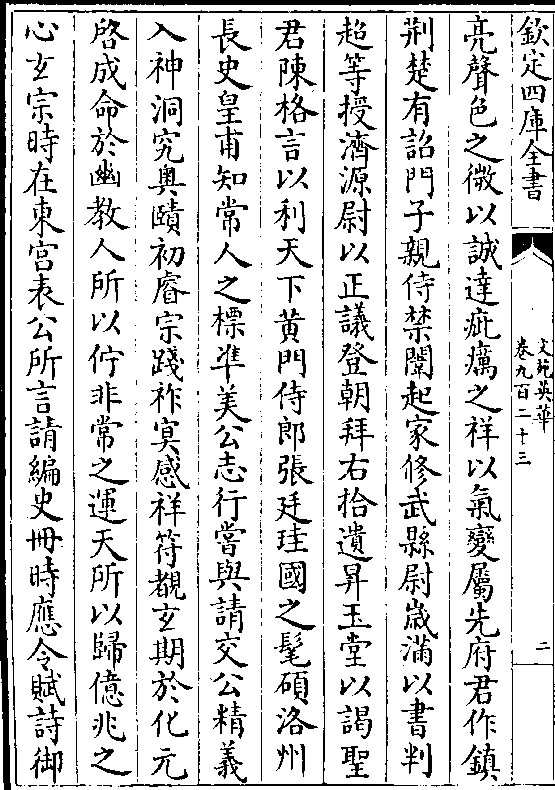 欽定四庫全書
文苑英華
卷九百二十三
二
亮聲色之微以誠達疵癘之祥以氣變屬先府君作鎮
荆楚有詔門子親侍禁闈起家修武縣尉嵗滿以書判
超等授濟源尉以正議登朝拜右拾遺昇玉堂以謁聖
君陳格言以利天下黄門侍郎張廷珪國之髦碩洛州
長史皇甫知常人之標凖美公志行嘗與請交公精義
入神洞究奥賾初睿宗踐祚寘感祥符覩玄期於化元
啓成命於幽教人所以佇非常之運天所以歸億兆之
心玄宗時在東宫表公所言請編史冊時應令賦詩御